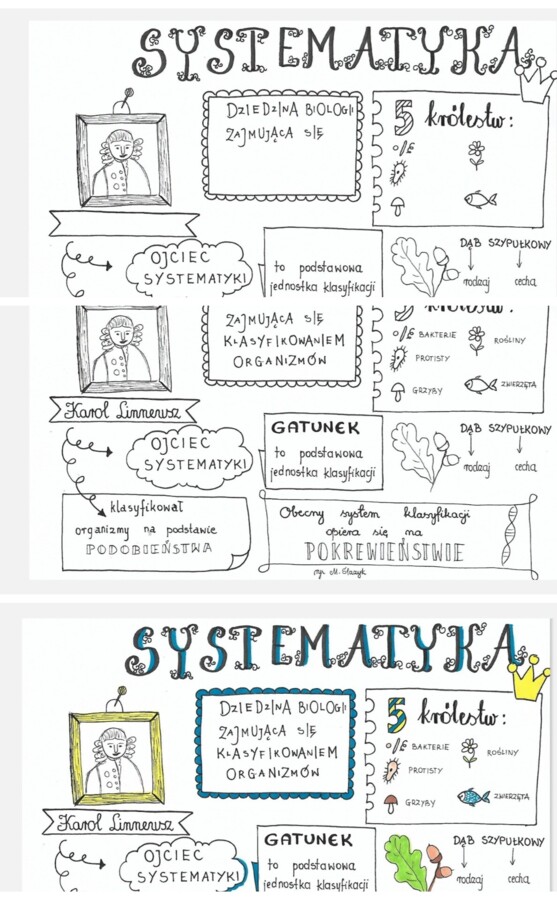 SYSTEMATYKA
DZIEDZINA BIOLOGII
ZAJMUJĄCA SIĘ
5 królestw:
OJCIEC
SYSTEMATYKI
to podstawowa
jednostka klasyfikacji
DĄB SZYPUŁKOWY
rodzaj cecha
królestw:
ZAJMUJĄCA SIĘ
KLASYFIKOWANIEM
ORGANIZMÓW
BAKTERIE
ROŚLINY
PROTISTY
GRZYBY
ZWIERZĘTA
Karol Linneusz
OJCIEC
SYSTEMATYKI
GATUNEK
to podstawowa
jednostka klasyfikacji
DĄB SZYPUŁKOWY
rodzaj cecha
klasyfikował
organizmy na podstawie
PODOBIEŃSTWA
Obecny system klasyfikacji
opiera się na
POKREWIEŃSTWIE
SYSTEMATYKA
DZIEDZINA BIOLOGII
ZAJMUJĄCA SIĘ
KLASYFIKOWANIEM
ORGANIZMÓW
5 królestw:
BAKTERIE
ROŚLINY
PROTISTY
GRZYBY
ZWIERZĘTA
Karol Linneusz
OJCIEC
SYSTEMATYKI
GATUNEK
to podstawowa
jednostka klasyfikacji
DĄB SZYPUŁKOWY
rodzaj cecha